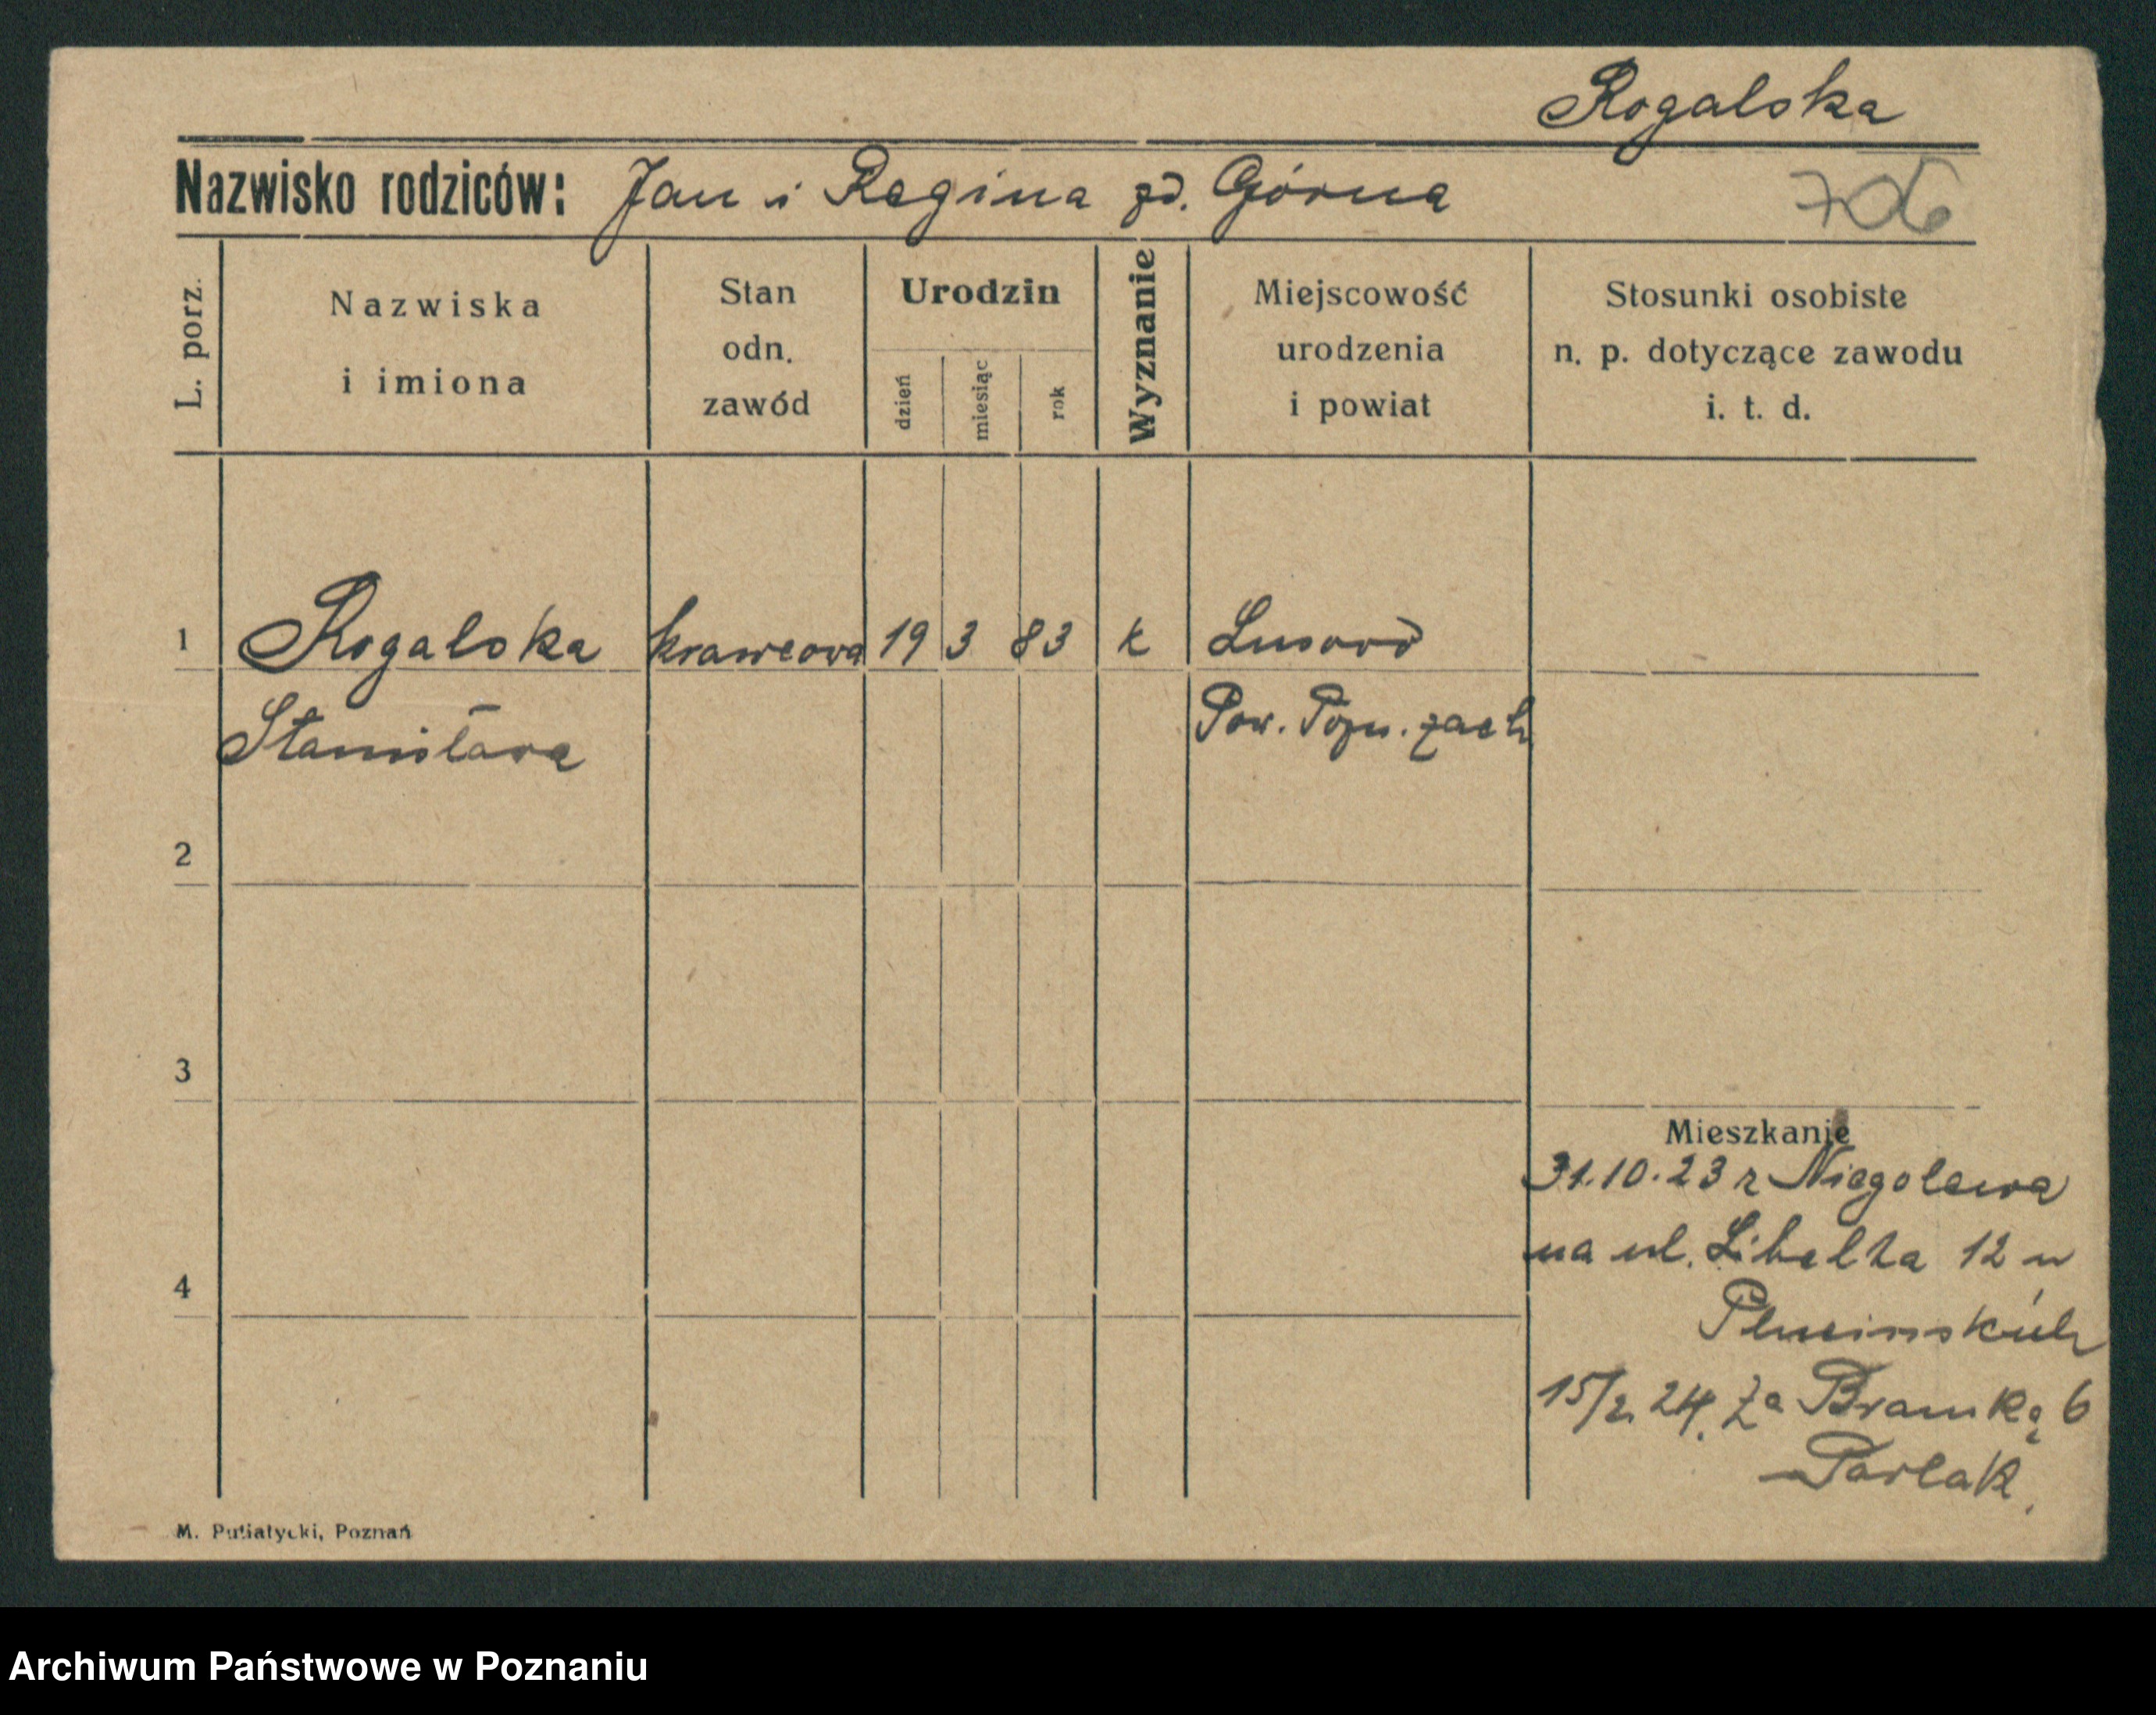 Rogalska
Nazwisko rodziców: Jan i Regina zd. Górna
706
L. porz.
Nazwiska
i imiona
Stan
odn.
zawód
Urodzin
dzień
miesiąc
rok
Wyznanie
Miejscowość
urodzenia
i powiat
Stosunki osobiste
n. p. dotyczące zawodu
i. t. d.
1 Rogalska krawcowa 19 3 83 k Lusowo
Stanisława Pow. Pozn. zach
2
3
Mieszkanie
31.10.23 z Niegolewa
na ul. Libelta 12 u
4
Plucińskich
15/2. 24. Za Bramką 6
M. Putiatycki, Poznań
Archiwum Państwowe w Poznaniu